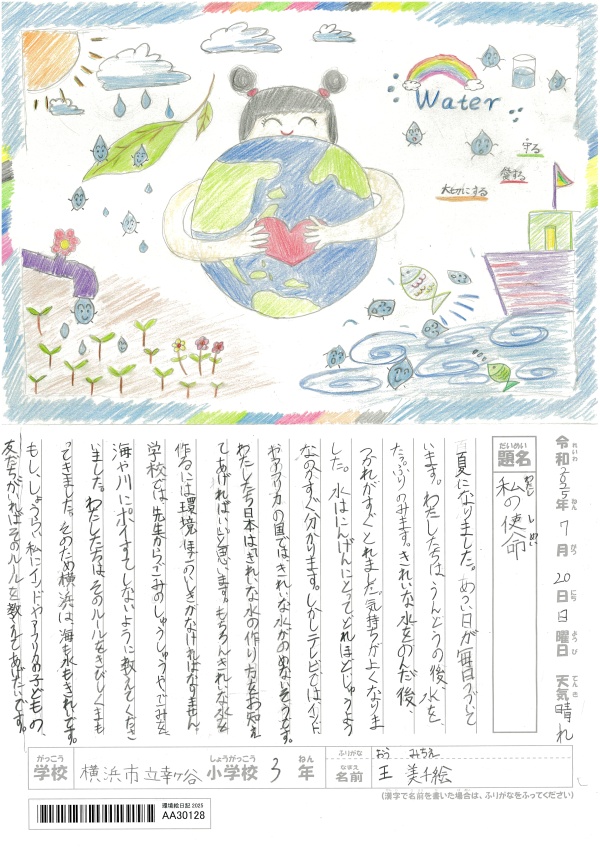 Water
守る
愛する
大切にする
令和2025年7月20日日曜日 天気晴れ
れいわ ねん がつ にち ようび てんき
だいめい
題名
わたし しめい
私の使命
夏になりました。あつい日が毎日つづと
います。わたしたちは、うんどうの後、水を、
たっぷりのみます。きれいな水をのんだ後、
つかれがすぐとれました。気持ちがよくなりま
した。水はにんげんにとってどれほどじゅうよう
なのかすぐ分かります。しかしテレビではインド
やアフリカの国ではきれいな水がのめないそうです。
わたしたち日本はきれいな水の作り方をお知え
てあげればいいと思います。もちろんきれいな水を
作るには環境ほごのいしきがなければなりません。
学校では、先生からごみのしゅうしゅうや、ごみを
海や川にポイすてしないように教えてください
ました。わたしたちはそのルールをきびしくまも
ってきました。そのため横浜は、海も水もきれいです。
もし、しょうらい私にインドやアフリカの子どもの、
友だちがいればそのルールを教えてあげたいです。
がっこう しょうがっこう ねん
学校 横浜市立幸ケ谷 小学校 3 年
ふりがな おう みちえ
なまえ
名前 王 美千絵
(漢字で名前を書いた場合は、ふりがなをふってください)
環境絵日記 2025
AA30128